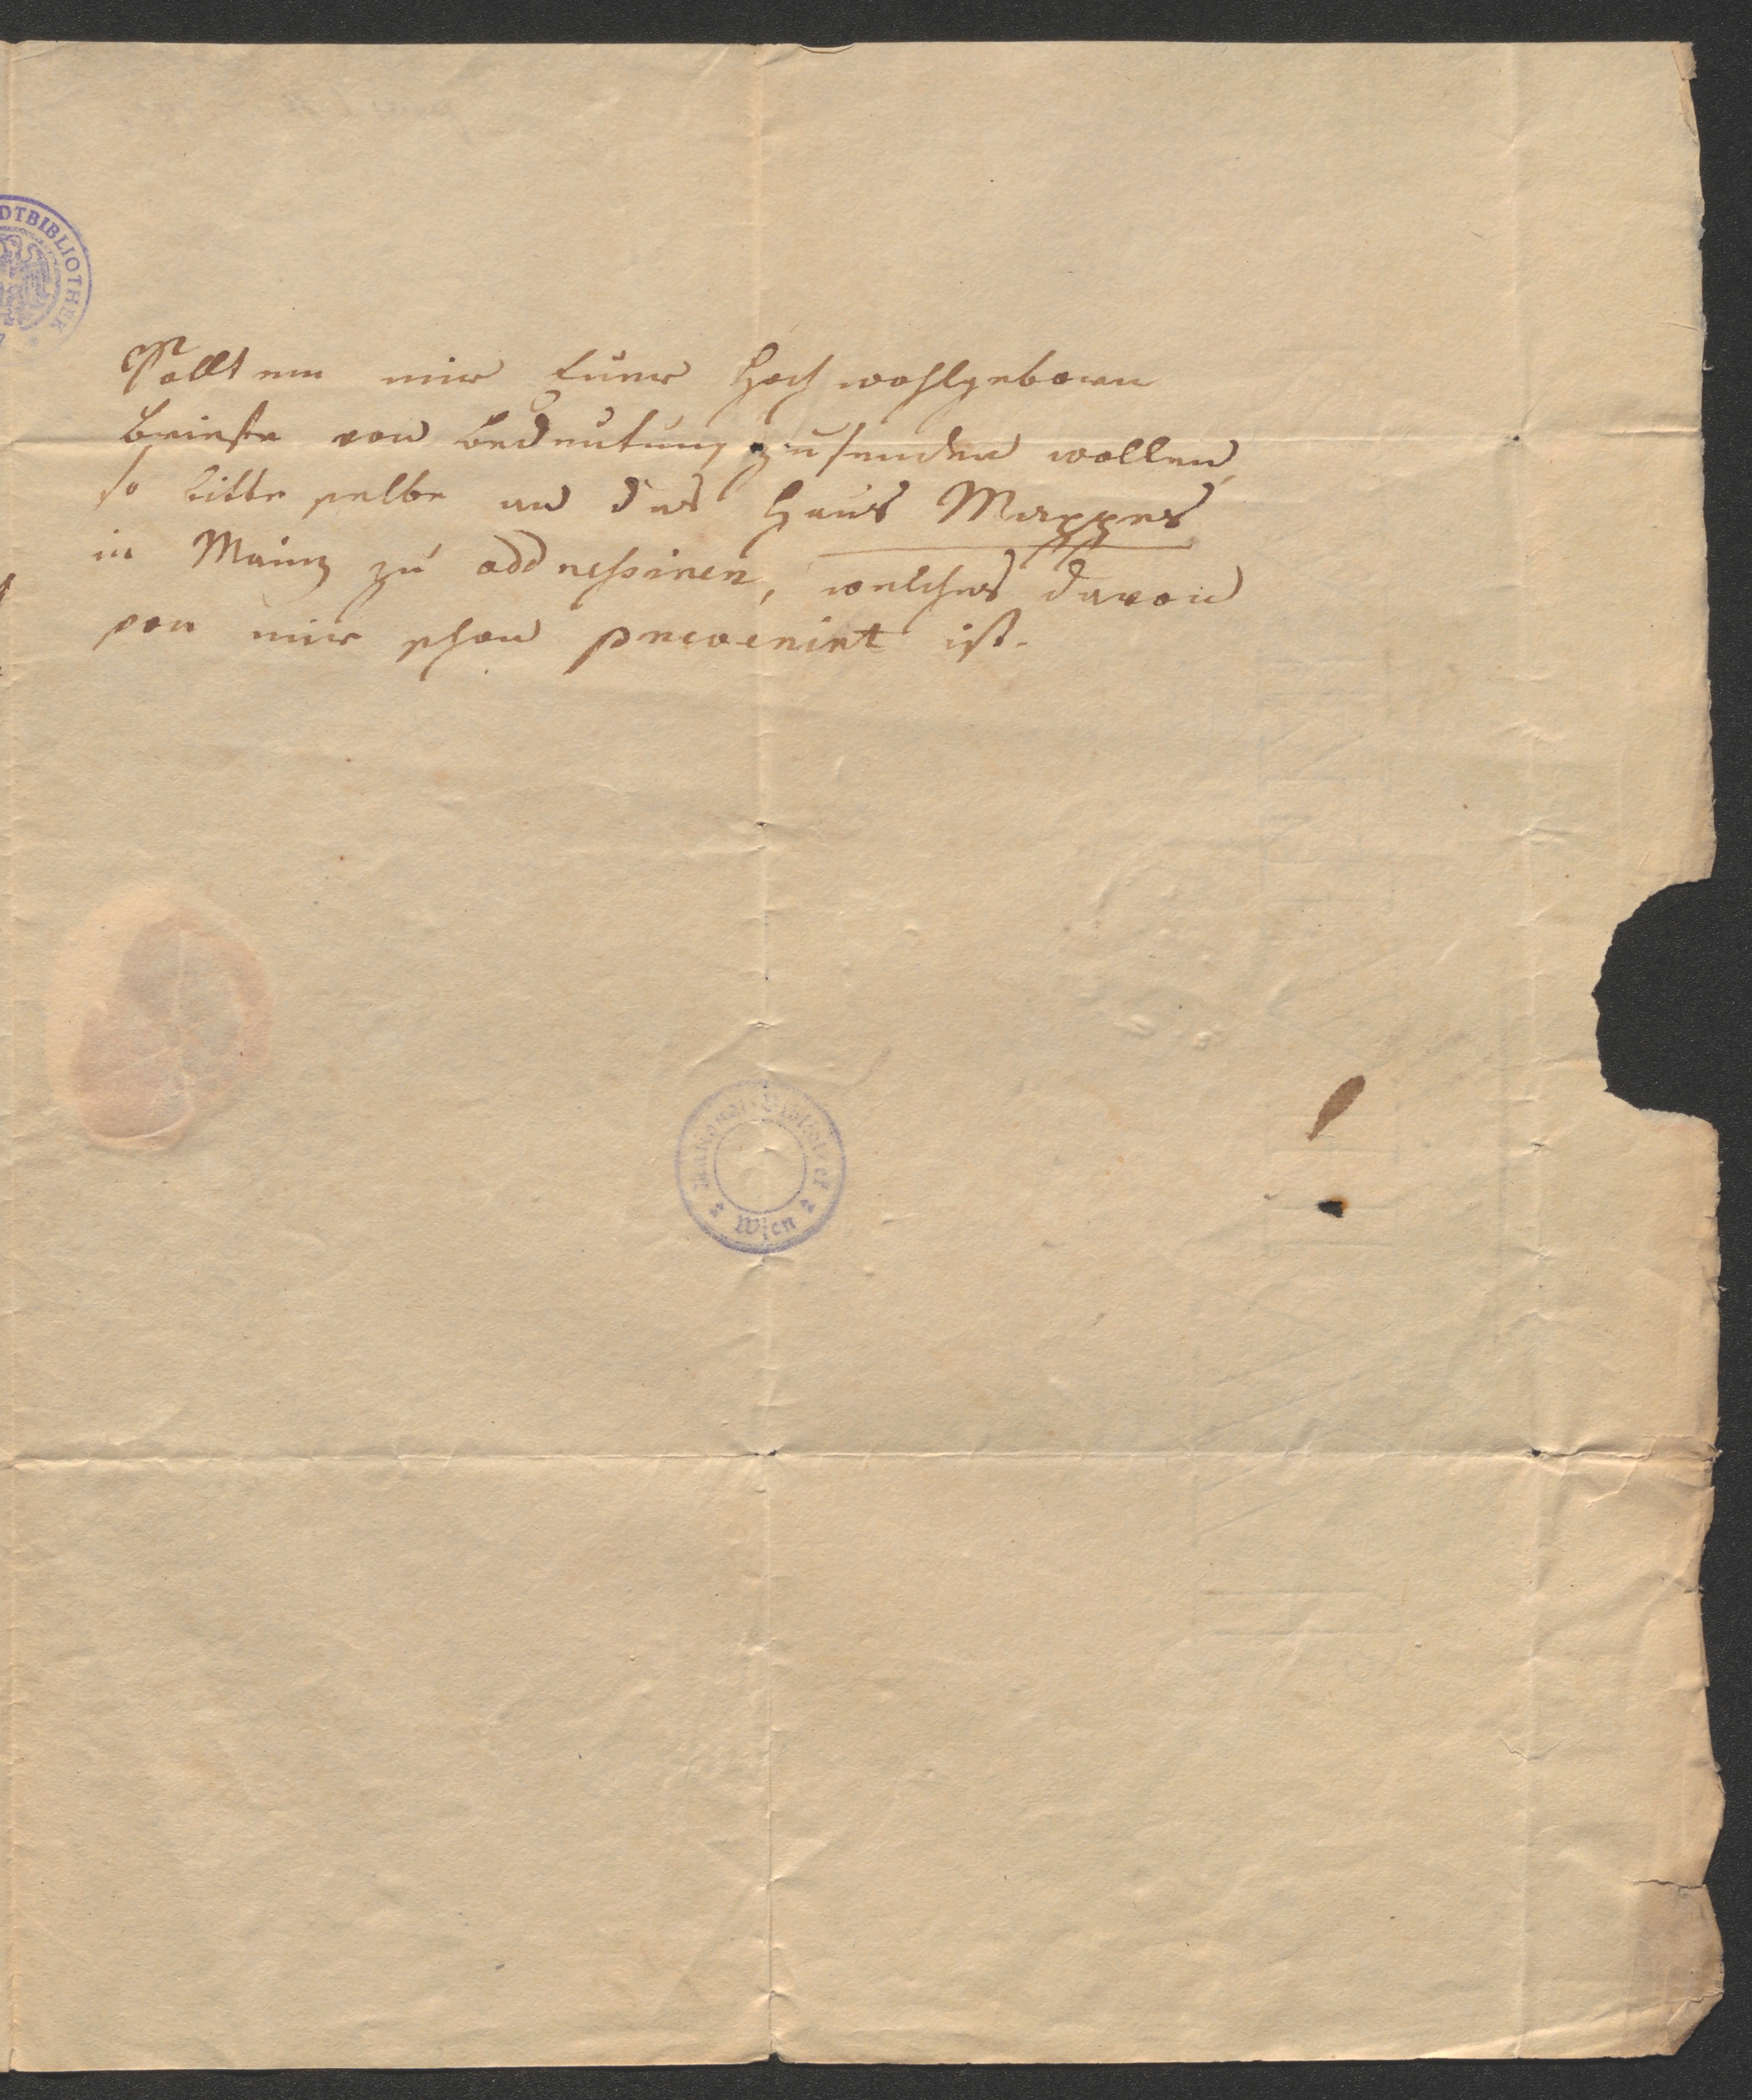 DTBIBLIOTHEK
Sollten mir Euer Hochwohlgeboren
Briefe von Bedeutung zusenden wollen,
so bitte selbe an das Haus Mappes
in Mainz zu addressiren, welches davon
von mir schon prevenirt ist.
National-Bibliothek
Wien